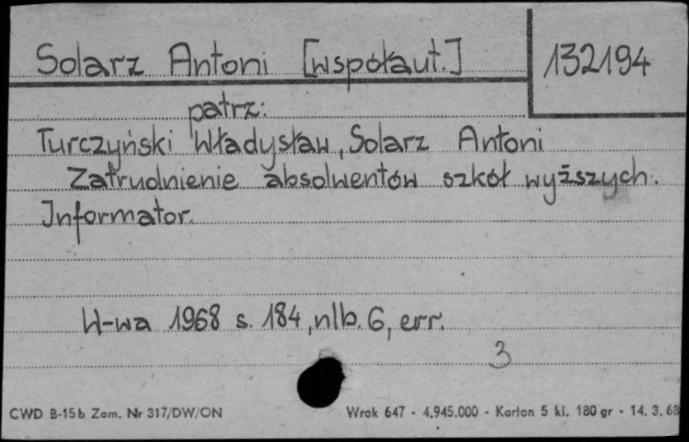 Solarz Antoni [współaut.] 132194
patrz:
Turczyński Władysław, Solarz Antoni
Zatrudnienie absolwentów szkół wyższych.
Informator.
W-wa 1968 s. 184, nlb. 6, err.
3
CWD B-15b Zam. Nr 317/DW/ON Wrok 647 - 4.945.000 - Karton 5 kl. 180 gr - 14. 3. 68